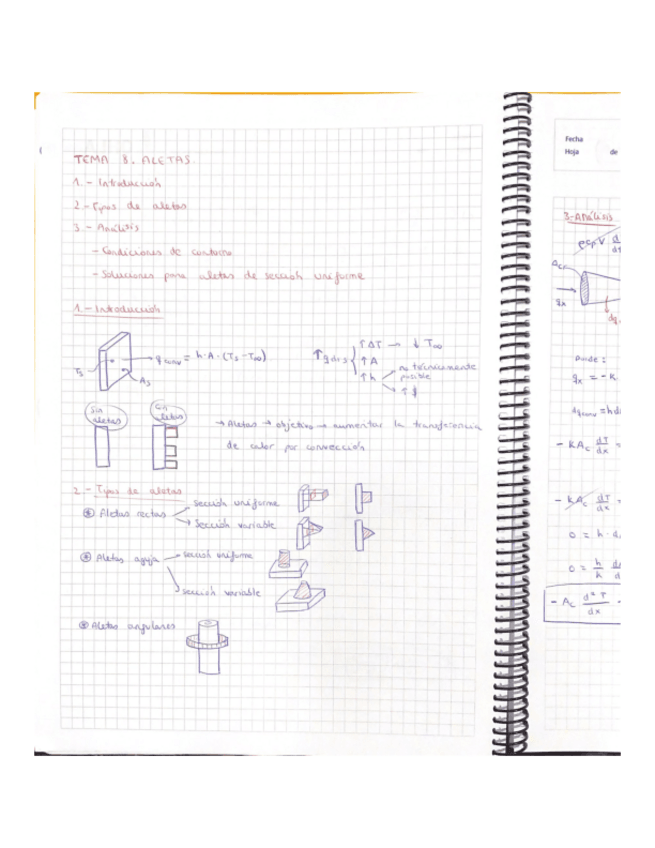 TEMA 8. ALETAS.
1.- Introducción
2.- Tipos de aletas
3.- Análisis
- Condiciones de contorno
- Soluciones para aletas de sección uniforme
1.- Introducción
q conv = h·A·(Ts - T∞)
Ts
As
↑ q des
↑ΔT → ↓ T∞
↑A
↑h
no técnicamente posible
↑ $
Sin aletas
Con aletas
→ Aletas → objetivo → aumentar la transferencia
de calor por convección
2.- Tipos de aletas
⊛ Aletas rectas
sección uniforme
sección variable
⊛ Aletas aguja
sección uniforme
sección variable
⊛ Aletas angulares
Fecha
Hoja de
3-Análisis
ρcp·V d
dt
Acr
qx
dq
Donde:
qx = - K
dqconv = h d
- KAc dT/dx =
- KAc dT/dx =
0 = h · d
0 = h/h d
- Ac d²T/dx